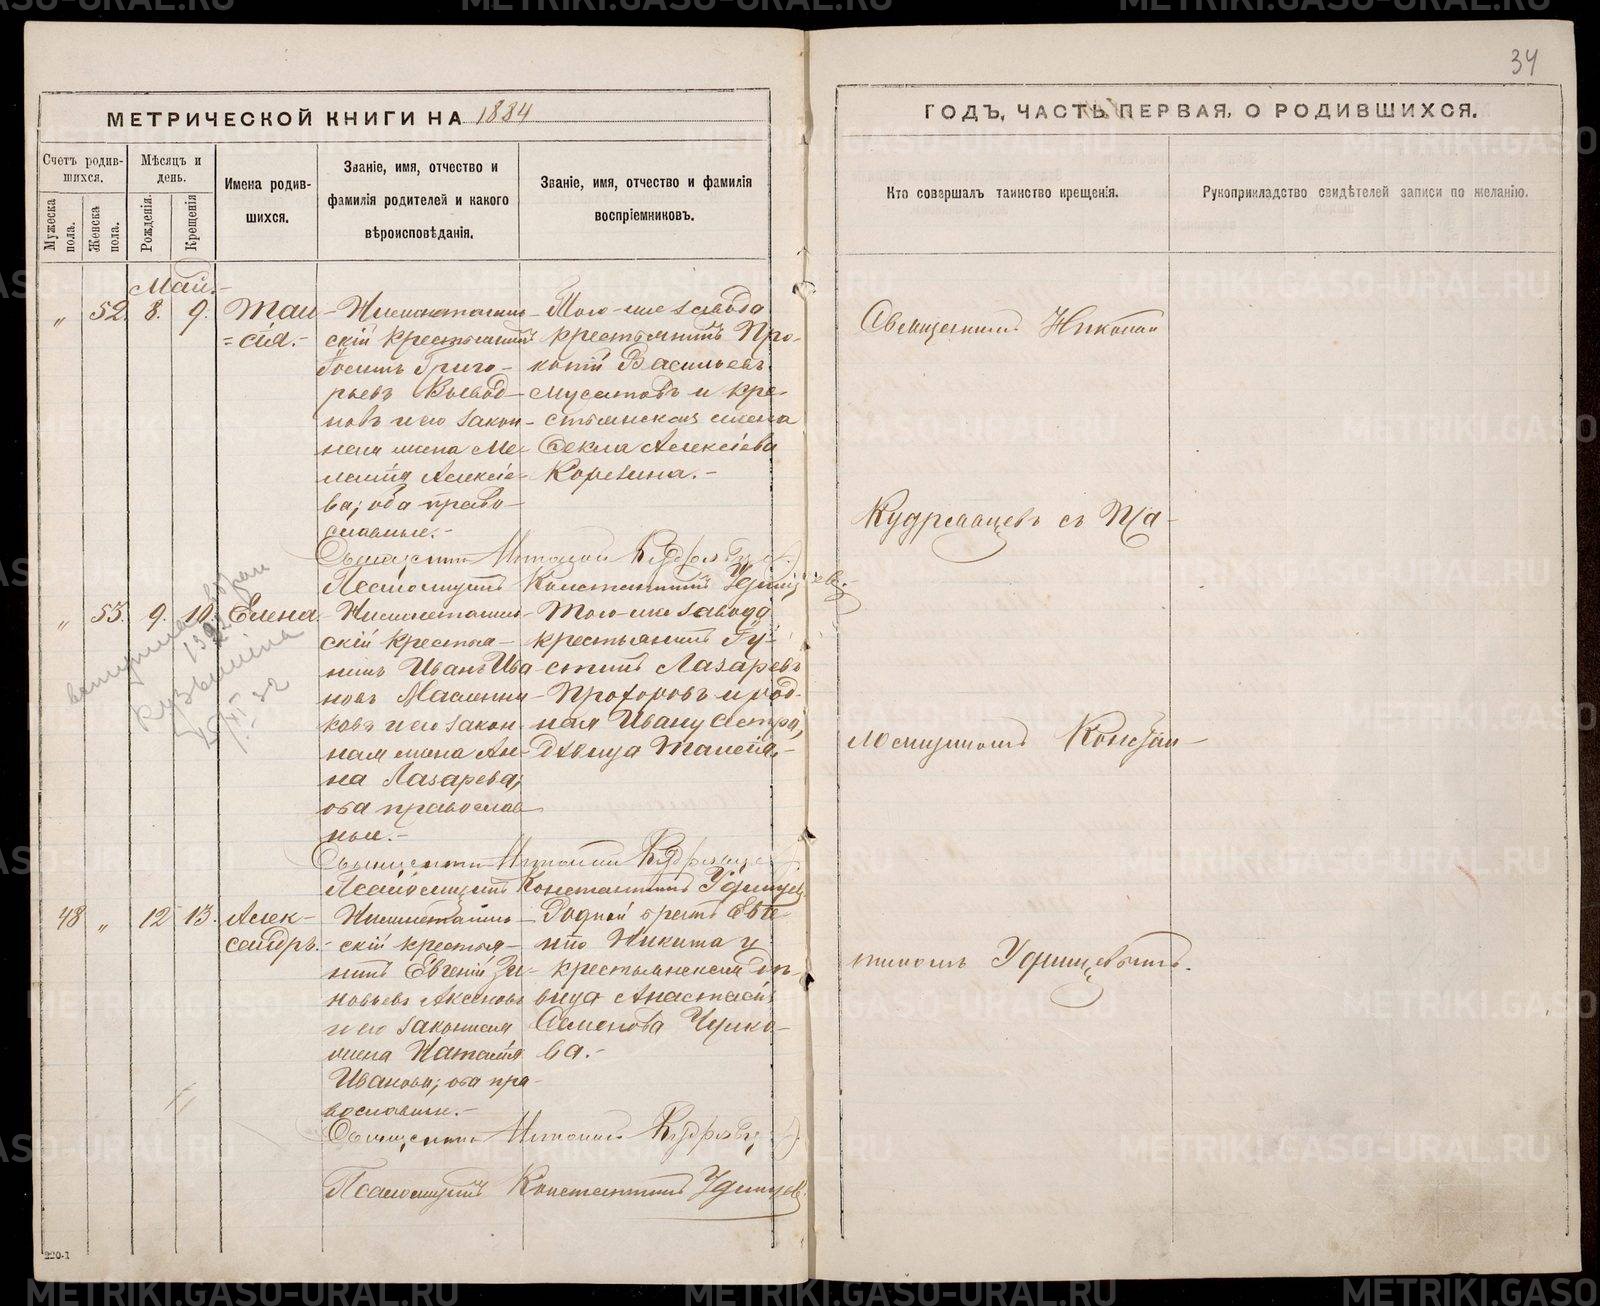 34
МЕТРИЧЕСКОЙ КНИГИ НА 1884
ГОДЪ, ЧАСТЬ ПЕРВАЯ, О РОДИВШИХСЯ.
Счетъ родив-
шихся.
Мужеска
пола.
Женска
пола.
Мѣсяцъ и
день.
Рожденія.
Крещенія
Имена родив-
шихся.
Званіе, имя, отчество и
фамилія родителей и какого
вѣроисповѣданія.
Званіе, имя, отчество и фамилія
воспріемниковъ.
Кто совершалъ таинство крещенія.
Рукоприкладство свидѣтелей записи по желанію.
Май.-
" 52. 8. 9.
Таи
=сія.-
скій крестьянинъ
Григо-
рьевъ
новъ и его закон-
ная жена Ме-
Алексіе-
ва; оба право-
славные.-
Того-же завода
крестьянинъ Про-
копій Васильевъ
Мусатовъ и кре-
стьянская жена
Фекла Алексіева
Коревина.-
Священникъ Николай Кудрявцевъ
Псаломщикъ Константинъ Удинцевъ
" 53. 9. 10. Елена.
скій крестья-
нинъ Иванъ Ива
новъ Масленни-
ковъ и его закон-
ная жена Ан-
на Лазарева;
оба православ
ные.-
Того-же завода
крестьянинъ Гу-
стинъ Лазаревъ
Прохоровъ и род-
ная Ивану сестра,
дѣвица Таисія.-
Священникъ Николай Кудрявцевъ
Псаломщикъ Константинъ Удинцевъ
48 " 12 13. Алек-
сандръ.-
скій крестья-
нинъ Евгеній Зи-
новьевъ Аксеновъ
и его законная
жена Наталія
Иванова; оба пра-
вославные.-
Родной братъ Евге-
нію Никита и
крестьянская дѣ-
вица Анастасія
Семенова Черка-
ва.-
Священникъ Николай Кудрявцевъ
Псаломщикъ Константинъ Удинцевъ
Священникъ Николай
Кудрявцевъ съ Пса-
ломщикомъ Констан-
тиномъ Удинцевымъ.
220-1
METRIKI.GASO-URAL.RU